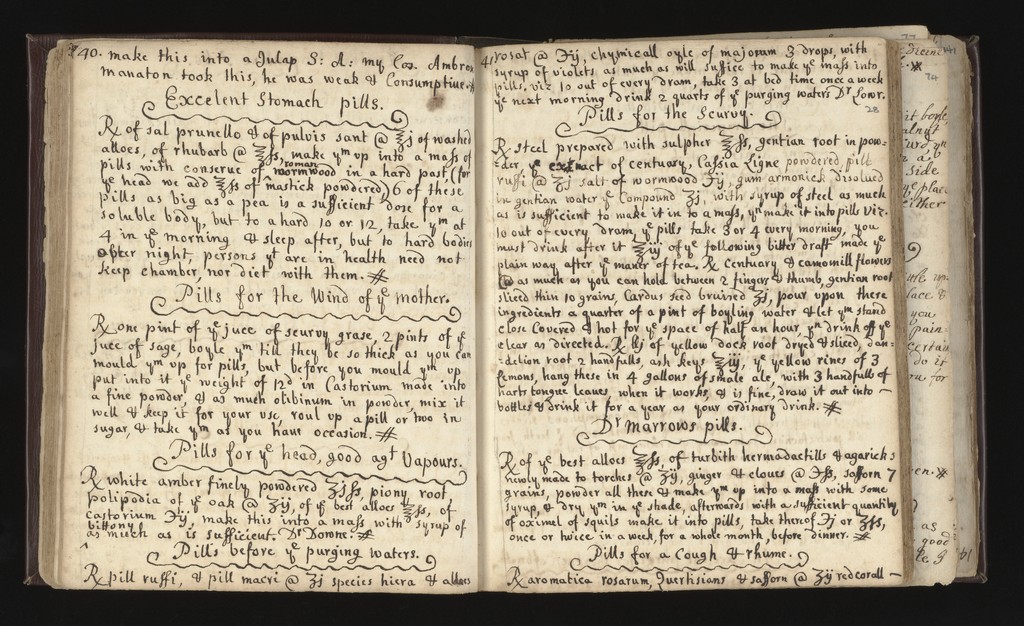 40. make this into a Julap S: A: my Coz. Ambros
manaton took this, he was weak & Consumptive #
Excelent Stomach pills.
℞ of sal prunello & of pulvis sant @ ʒj of washed
alloes, of rhubarb @ ℥ss, make yᵐ up into a mass of
pills with conserve of roman wormwood in a hard past (for
yᵉ head we add ℥ss of mastick powdered) 6 of these
pills as big as a pea is a sufficient Dose for a
soluble body, but to a hard 10 or 12, take yᵐ at
4 in yᵉ morning & sleep after, but to hard bodies
after night, persons yᵗ are in health need not
keep chamber, nor diet with them. #
Pills for the Wind of yᵉ mother.
℞ one pint of yᵉ juce of scurvy grase, 2 pints of yᵉ
juce of sage, boyle yᵐ till they be so thick as you can
mould yᵐ up for pills, but before you mould yᵐ up
put into it yᵉ weight of 12ᵈ in Castorium made into
a fine powder, & as much olibinum in powder, mix it
well & keep it for your use, roul up a pill or two in
sugar, & take yᵐ as you have occasion. #
Pills for yᵉ head, good agᵗ Vapours.
℞ white amber finely powdered ʒjss, piony root,
polipodia of yᵉ oak @ ʒij, of yᵉ best alloes ℥ss, of
Castorium ℈ij, make this into a mass with syrup of
bittony as much as is sufficient. Dʳ Dorone. #
Pills before yᵉ purging waters.
℞ pill ruffi, & pill macri @ ʒj species hiera & alloes
41 rosat @ ℈ij, chymicall oyle of majorum 3 drops, with
syrup of violets as much as will suffice to make yᵉ mass into
pills. viz 10 out of every dram, take 3 at bed time once a week
yᵉ next morning drink 2 quarts of yᵉ purging waters Dʳ Lowr.
28
Pills for the Scurvy.
℞ steel prepared with sulpher ℥ss, gentian root in pow-
-der, yᵉ extract of centuary, Cassia Ligne powdered, pill
ruffi @ ʒj salt of wormwood ℈ij, gum armonick disolued
in gentian water yᵉ Compound ʒj, with syrup of steel as much
as is sufficient to make it in to a mass, yⁿ make it into pills viz.
10 out of every dram, yᵉ pills take 3 or 4 every morning, you
must drink after it ℥iij of yᵉ following bitter draft made yᵉ
plain way after yᵉ maner of tea. ℞ Centuary & camomill flowers
@ as much as you can hold between 2 fingers & thumb, gentian root
sliced thin 10 grains, Cardus seed bruised ʒj, pour upon these
ingredients a quarter of a pint of boyling water & let yᵐ stand
close Covered & hot for yᵉ space of half an hour, yⁿ drink off yᵉ
clear as directed. ℞ lls of yellow dock root dryed & sliced, dan-
-delion root 2 handfulls, ash keys ℥iij, yᵉ yellow rines of 3
Lemons, hang these in 4 gallons of smale ale, with 3 handfulls of
harts tongue leaues, when it works, & is fine, draw it out into
bottles & drink it for a year as your ordinary drink. #
Dʳ Marrows pills.
℞ of yᵉ best alloes ℥ss, of turbith hermodactills & agaricks
newly made to torches @ ʒij, ginger & cloues @ ℈ss, saforn 7
grains, powder all these & make yᵐ up into a mass with some
syrup, & dry yᵐ in yᵉ shade, afterwards with a sufficient quantity
of oximel of squils make it into pills, take thereof ℈j or ʒss,
once or twice in a week, for a whole month, before dinner. #
Pills for a Cough & rhume.
℞ aromatica rosarum, Quertisians & saforn @ ʒij red corall
74
it
side
either
you
pain
certain
do it
for
as
good